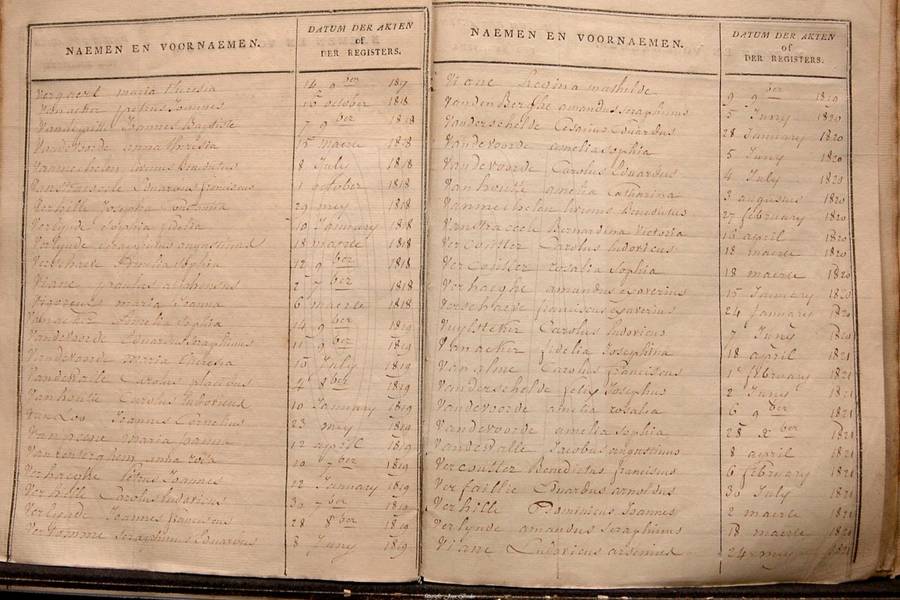 NAEMEN EN VOORNAEMEN. DATUM DER AKTEN
of
DER REGISTERS.
maria theresia 14 9ber 1817
Joannes 16 october 1818
Joannes Baptiste 7 9ber 1818
Vandevoorde anna theresia 15 maerte 1818
Benedictus 8 July 1818
Eduardus franciscus 1 october 1818
Verhille Josepha 29 mey 1818
Verlynde Sophia fidelia 10 January 1818
Verlynde augustinus 18 maerte 1818
Verschaeve Amelia Sophia 12 9ber 1818
Viane alphonsus 2 7ber 1818
maria Joanna 6 maerte 1818
Vanacker Amelia Sophia 14 9ber 1819
Vandevoorde Eduardus Seraphinus 11 9ber 1819
Vandevoorde maria theresia 15 July 1819
VandeWalle Carolus placidus 4 8ber 1819
Vanhoutte Carolus Ludovicus 10 January 1819
Van Loo Joannes Cornelius 23 mey 1819
maria Joanna 12 april 1819
anna rosa 10 7ber 1819
Verhaeghe Petrus Joannes 22 January 1819
Verhille Carolus Ludovicus 30 7ber 1819
Joannes franciscus 28 8ber 1819
Seraphinus Eduardus 8 Juny 1819
NAEMEN EN VOORNAEMEN. DATUM DER AKTEN
of
DER REGISTERS.
Viane Regina mathilde 9 9ber 1819
VandenBerghe amandus 5 Juny 1820
Vanderschelde Cesarius Eduardus 28 January 1820
Vandevoorde amelia Sophia 5 Juny 1820
Vandevoorde Carolus Eduardus 4 July 1820
Vanhoutte amelia Catharina 3 augustus 1820
Benedictus 27 february 1820
Vanstraceele Bernardina Victoria 16 april 1820
Vercoutter Carolus Ludovicus 18 maerte 1820
Vercoutter rosalia Sophia 18 maerte 1820
Verhaeghe amandus Xaverius 15 January 1820
Verschaeve franciscus Xaverius 24 January 1820
Vuylsteker Carolus Ludovicus 7 Juny 1820
Vanacker fidelia Josephina 18 april 1821
Carolus franciscus 1 february 1821
Vanderschelde felix Josephus 2 Juny 1821
Vandevoorde amelia rosalia 6 9ber 1821
Vandevoorde amelia Sophia 28 Xber 1821
VandeWalle Jacobus augustinus 8 april 1821
Vercoutter Benedictus franciscus 6 february 1821
Verfaillie Eduardus arnoldus 30 July 1821
Verhille Dominicus Joannes 2 maerte 1821
Verlynde amandus Seraphinus 18 maerte 1821
Viane Ludovicus arsenius 24 mey 1821